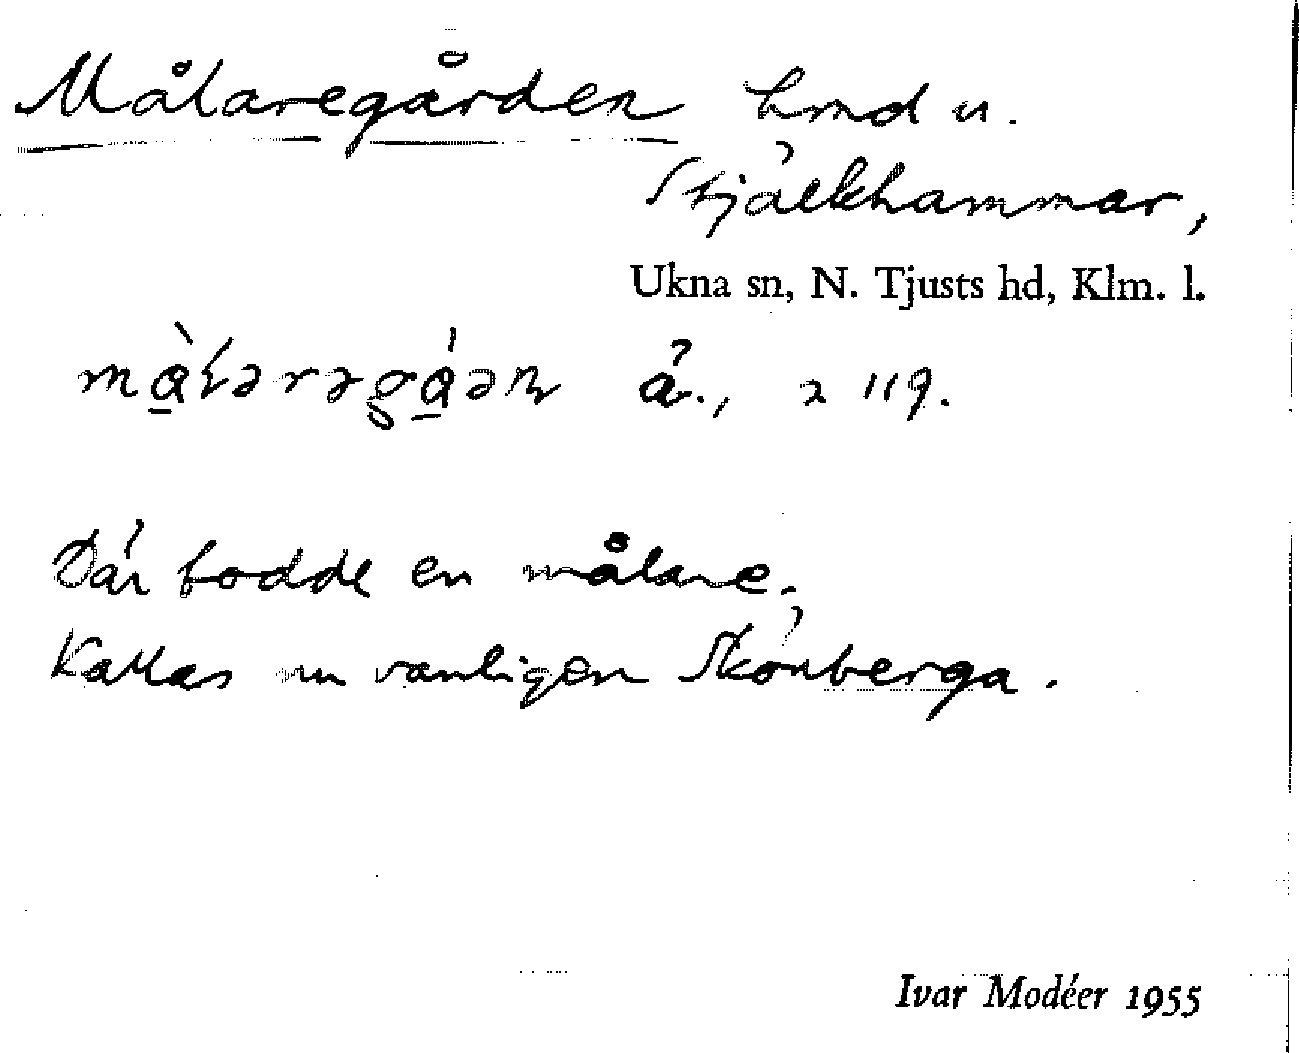 Målaregården hmd u.
Stjälkhammar,
Ukna sn, N. Tjusts hd, Klm. l.
ä., 2 119.
Där bodde en målare.
Kallas nu vanligen Skönberga.
Ivar Modéer 1955